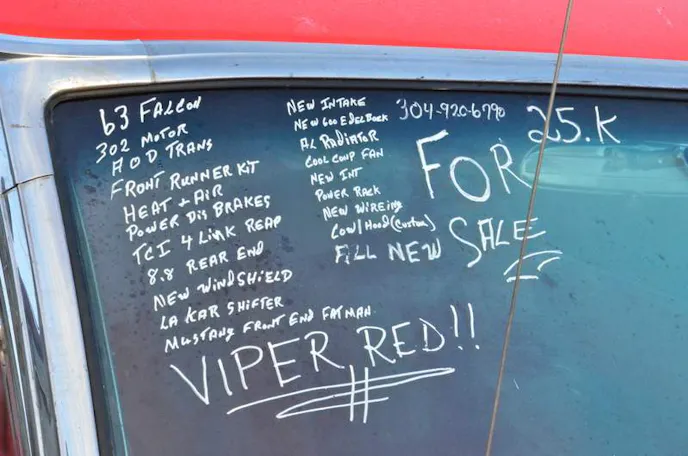 63 FALCON
302 MOTOR
AOD TRANS
FRONT RUNNER KIT
HEAT + AIR
POWER DIS BRAKES
TCI 4 LINK REAR
8.8 REAR END
NEW WINDSHIELD
LA KAR SHIFTER
MUSTANG FRONT END FATMAN
VIPER RED!!
NEW INTAKE
NEW 600 EDELBOCK
AL RADIATOR
COOL COUP FAN
NEW INT
POWER RACK
NEW WIREING
COWL HOOD (CUSTOM)
ALL NEW
304-920-6790
25.K
FOR
SALE